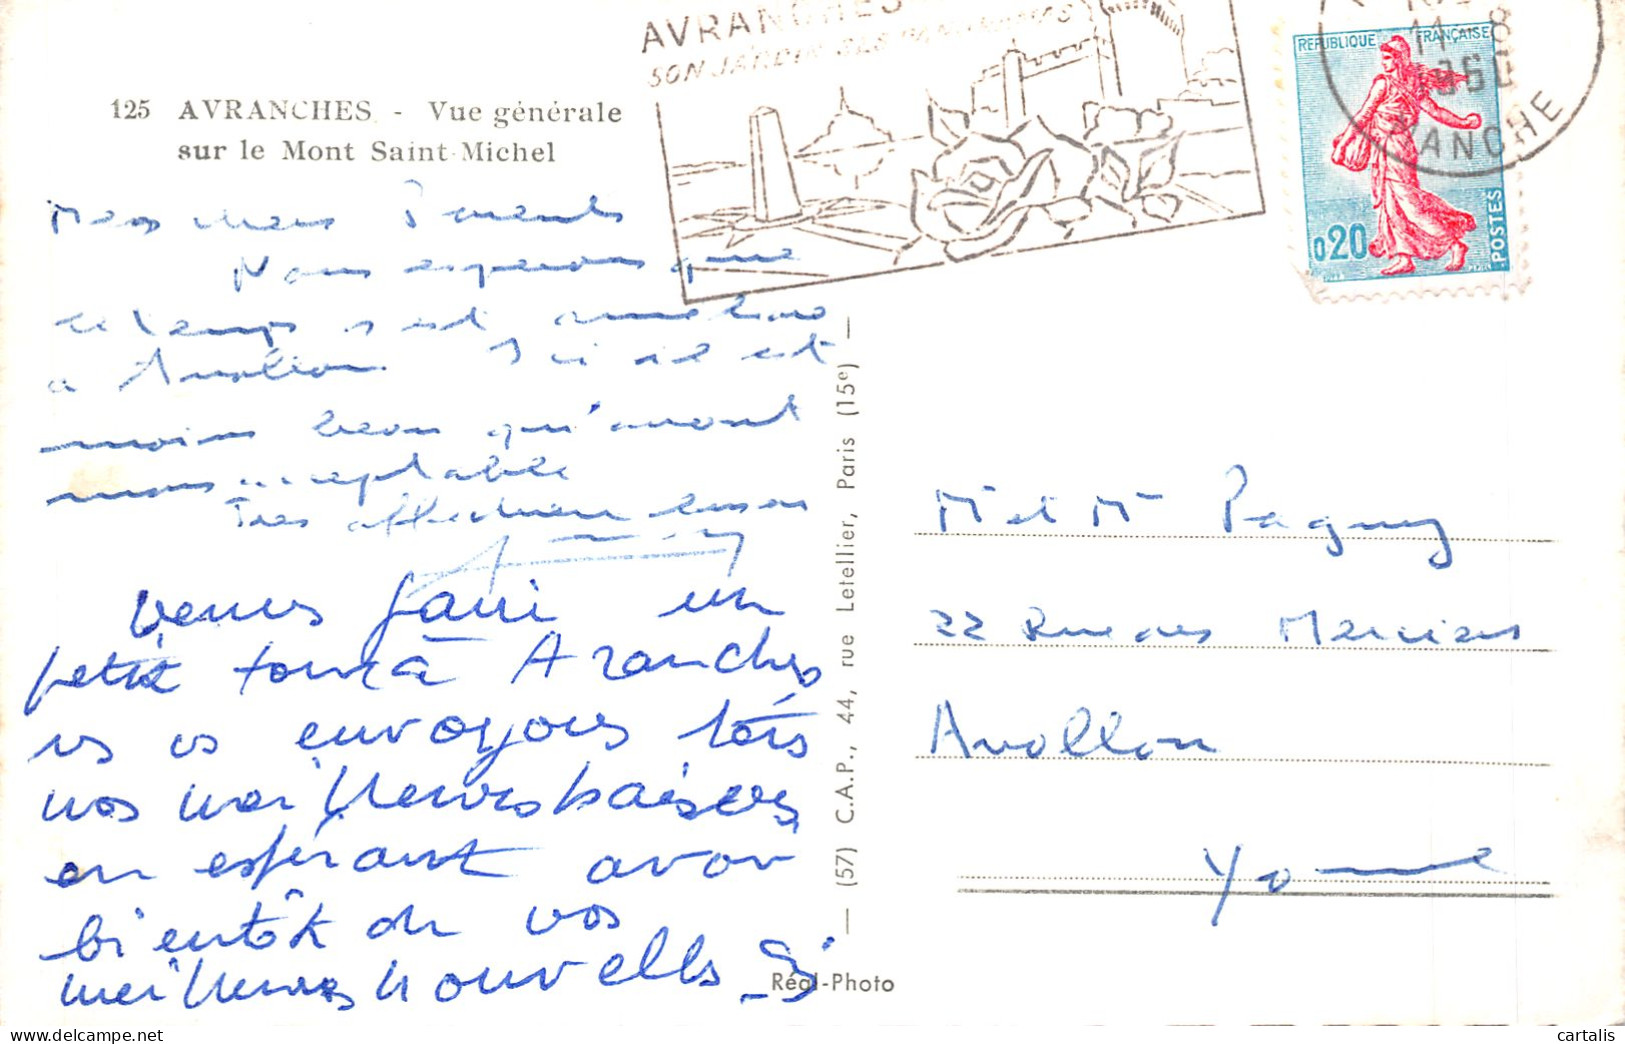 AVRANCHES
SON JARDIN DES
125 AVRANCHES - Vue générale
sur le Mont Saint-Michel
REPUBLIQUE FRANÇAISE
0,20
POSTES
11-8
1960
MANCHE
Mes chers Parents
Nous esperons que
le temps s'est amélioré
a Avallon. Ici il est
moins beau qu'avant
mais acceptable
Tres affectueusement
Venus faire un
petit tour à Avranches
ns vs envoyons
nos meilleures baisers
en espérant avoir
bientôt de vos
meilleures nouvelles
Mr et Me Pagny
22 Rue des Merciers
Avallon
Yonne
— (57) C.A.P., 44, rue Letellier, Paris (15e) —
Réal-Photo
cartalis.com